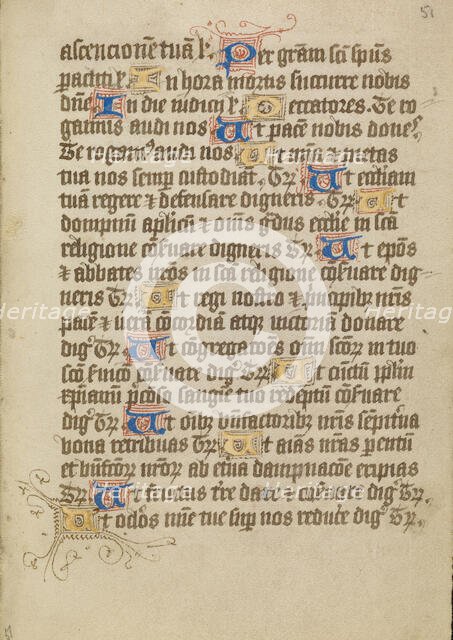 51
ascencionē tuā lr̄. Per grām scī spūs
pacliti lr̄. In hora mortis succurre nobis
dn̄e In die iudicij lr̄. Peccatores. Te ro
gamus audi nos Ut pacē nobis dones
Te rogamꝰ audi nos Ut mīa & pietas
tua nos semp̄ custodiat. Tr̄. Ut eccliam
tuam regere & defensare digneris. Tr̄. Ut
dompnū aplicū & om̄is gͣdus ecclie in scā
religione cōsuare digneris Tr̄. Ut ep̄os
& abbates nr̄os in scā religione cōsuare dig
neris Tr̄. Ut regi nostro & pͥncipibꝰ nr̄is
pacē & uerā cōcordiā atqꝫ uictoriā donare
digꝰ Tr̄. Ut cōgregatōnes om̄i scōꝝ in tuo
scō s̄uico cōsuare digꝰ Tr̄. Ut cūctū pplm
xp̄ianū p̄cioso sanguīe tuo redeptū cōsuare
digꝰ Tr̄. Ut oībꝫ bn̄factoribꝫ nr̄is sempitna
bona retribuas Tr̄. Ut aīas nr̄as parentū
et bn̄fcōꝝ nr̄oꝝ ab etna dampnacōe eripias
Tr̄. Ut fructus tr̄e dare & cōsuare digꝰ Tr̄.
Ut oclōs mīe tue sup̄ nos reducͤe digꝰ Tr̄.
51
Heritage Images